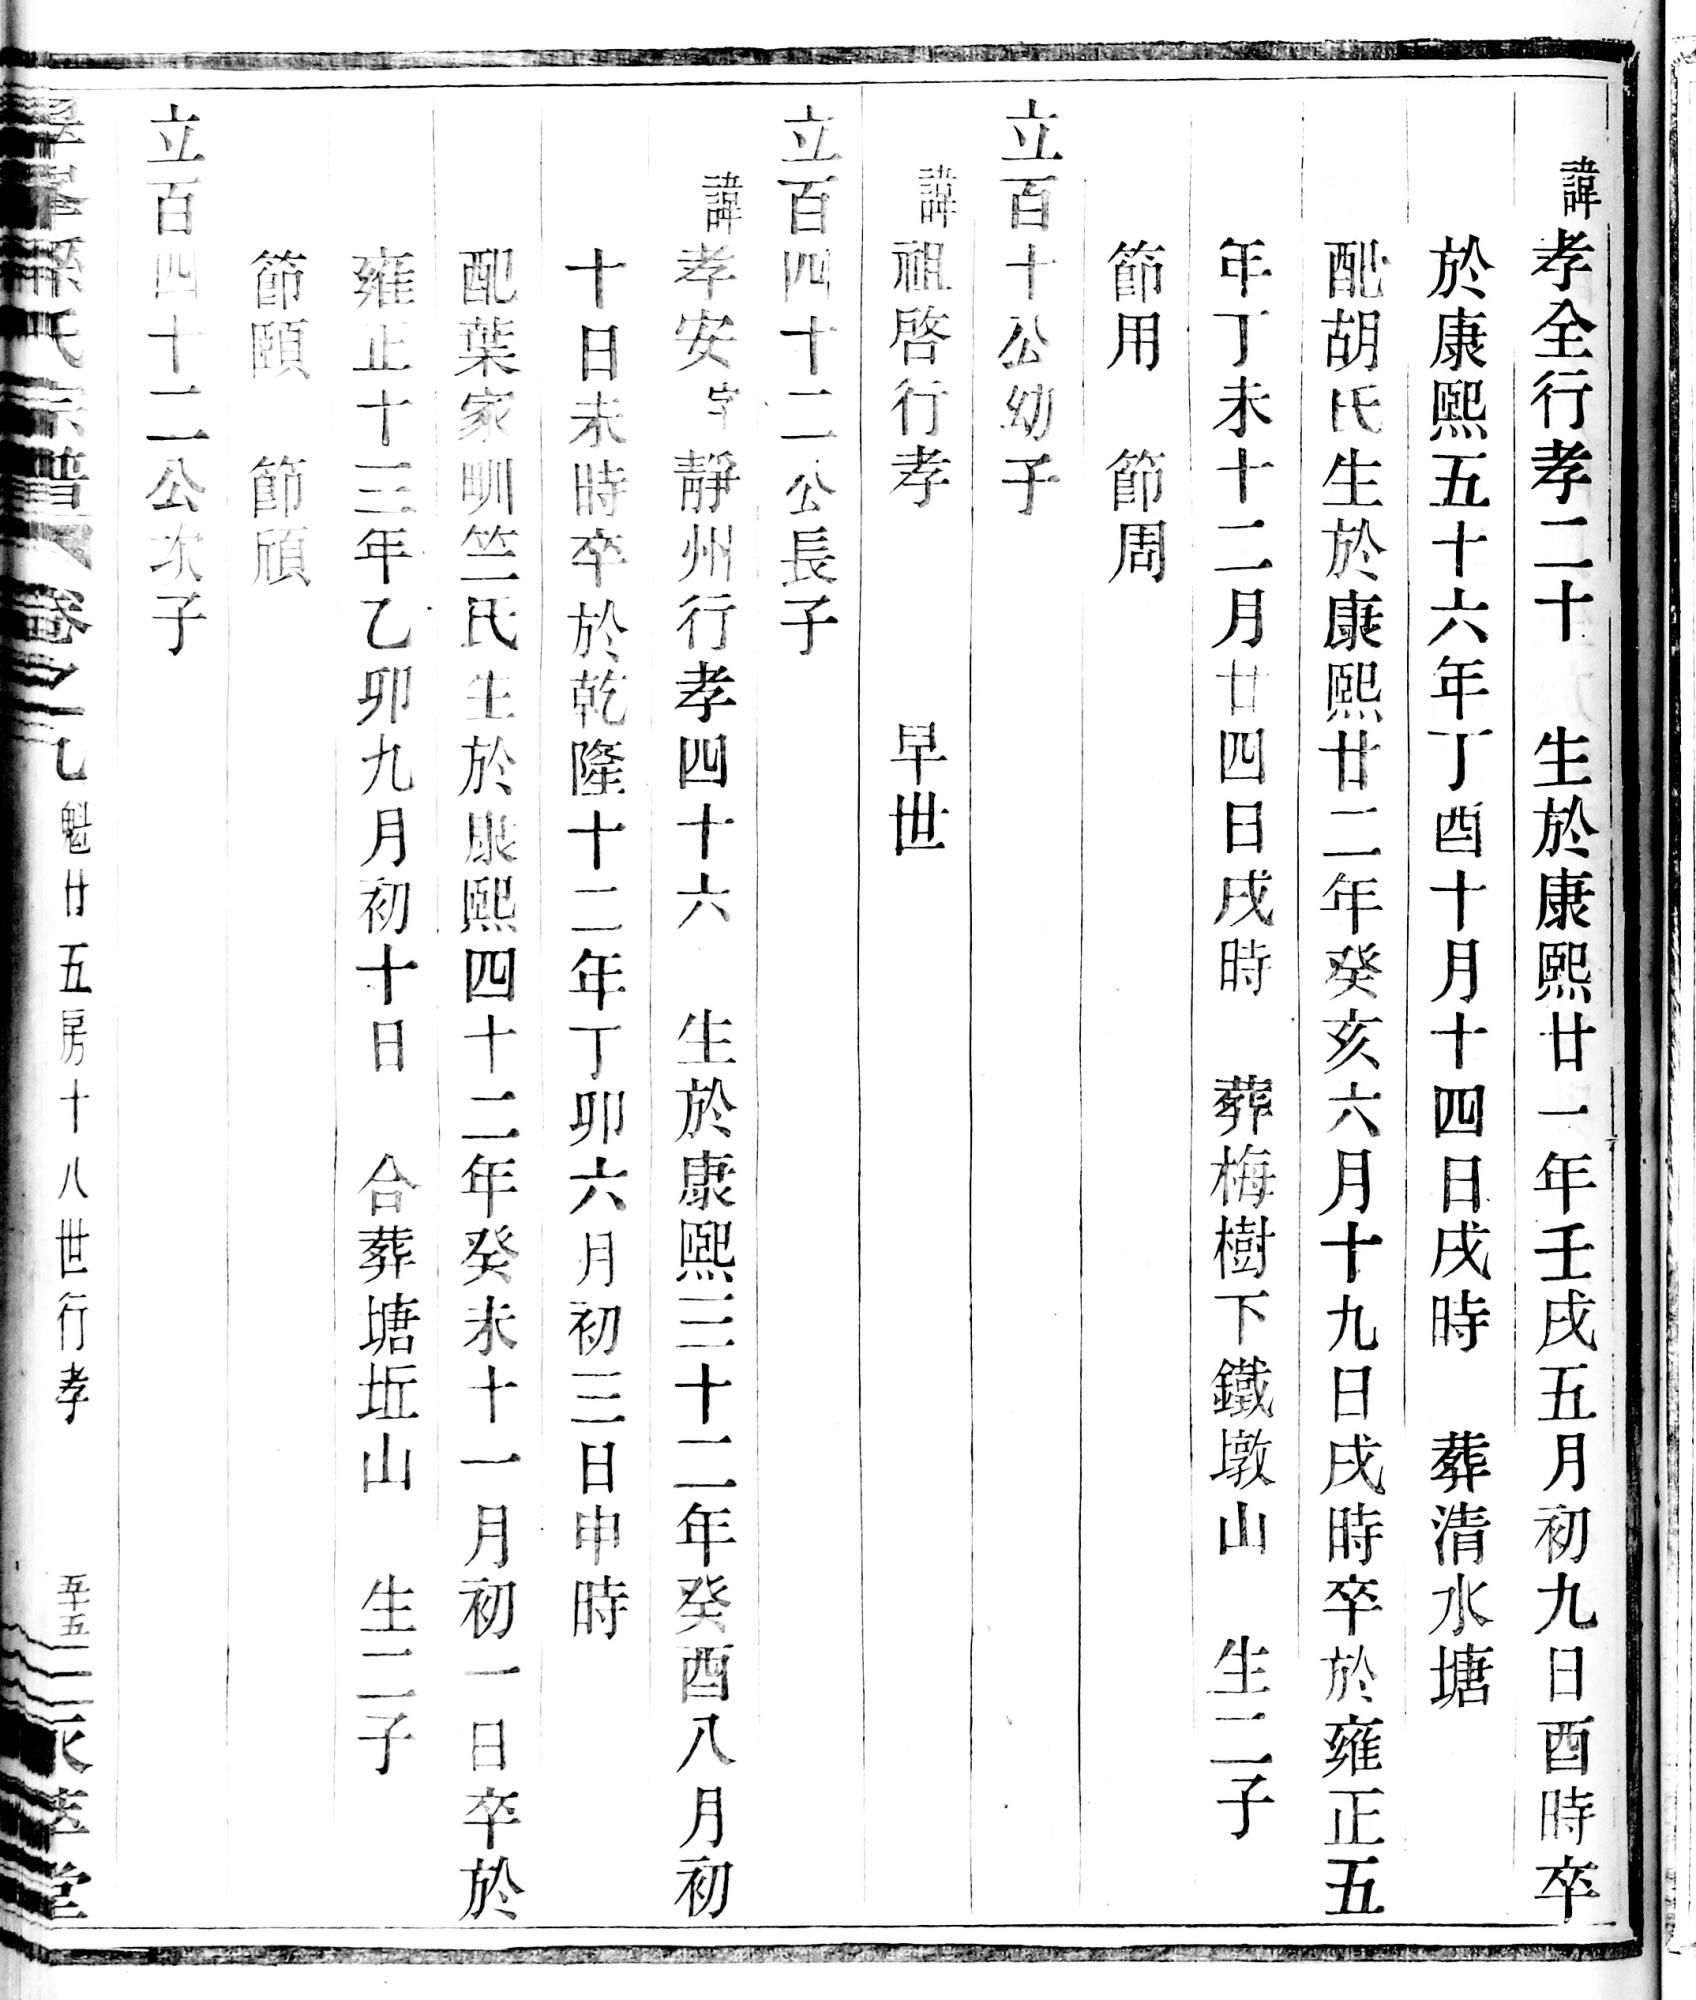 諱孝全行孝二十　生於康熙廿一年壬戌五月初九日酉時卒
於康熙五十六年丁酉十月十四日戌時　葬清水塘
配胡氏生於康熙廿二年癸亥六月十九日戌時卒於雍正五
年丁未十二月廿四日戌時　葬梅樹下鐵墩山　生二子
節用　節周
立百十公幼子
諱祖啓行孝　早世
立百四十二公長子
諱孝安字靜州行孝四十六　生於康熙三十二年癸酉八月初
十日未時卒於乾隆十二年丁卯六月初三日申時
配葉家甽竺氏生於康熙四十二年癸未十一月初一日卒於
雍正十三年乙卯九月初十日　合葬塘坵山　生二子
節頤　節頎
立百四十二公次子
孫氏宗譜　卷之一乙　魁廿五房十八世行孝　五十五　孝堂